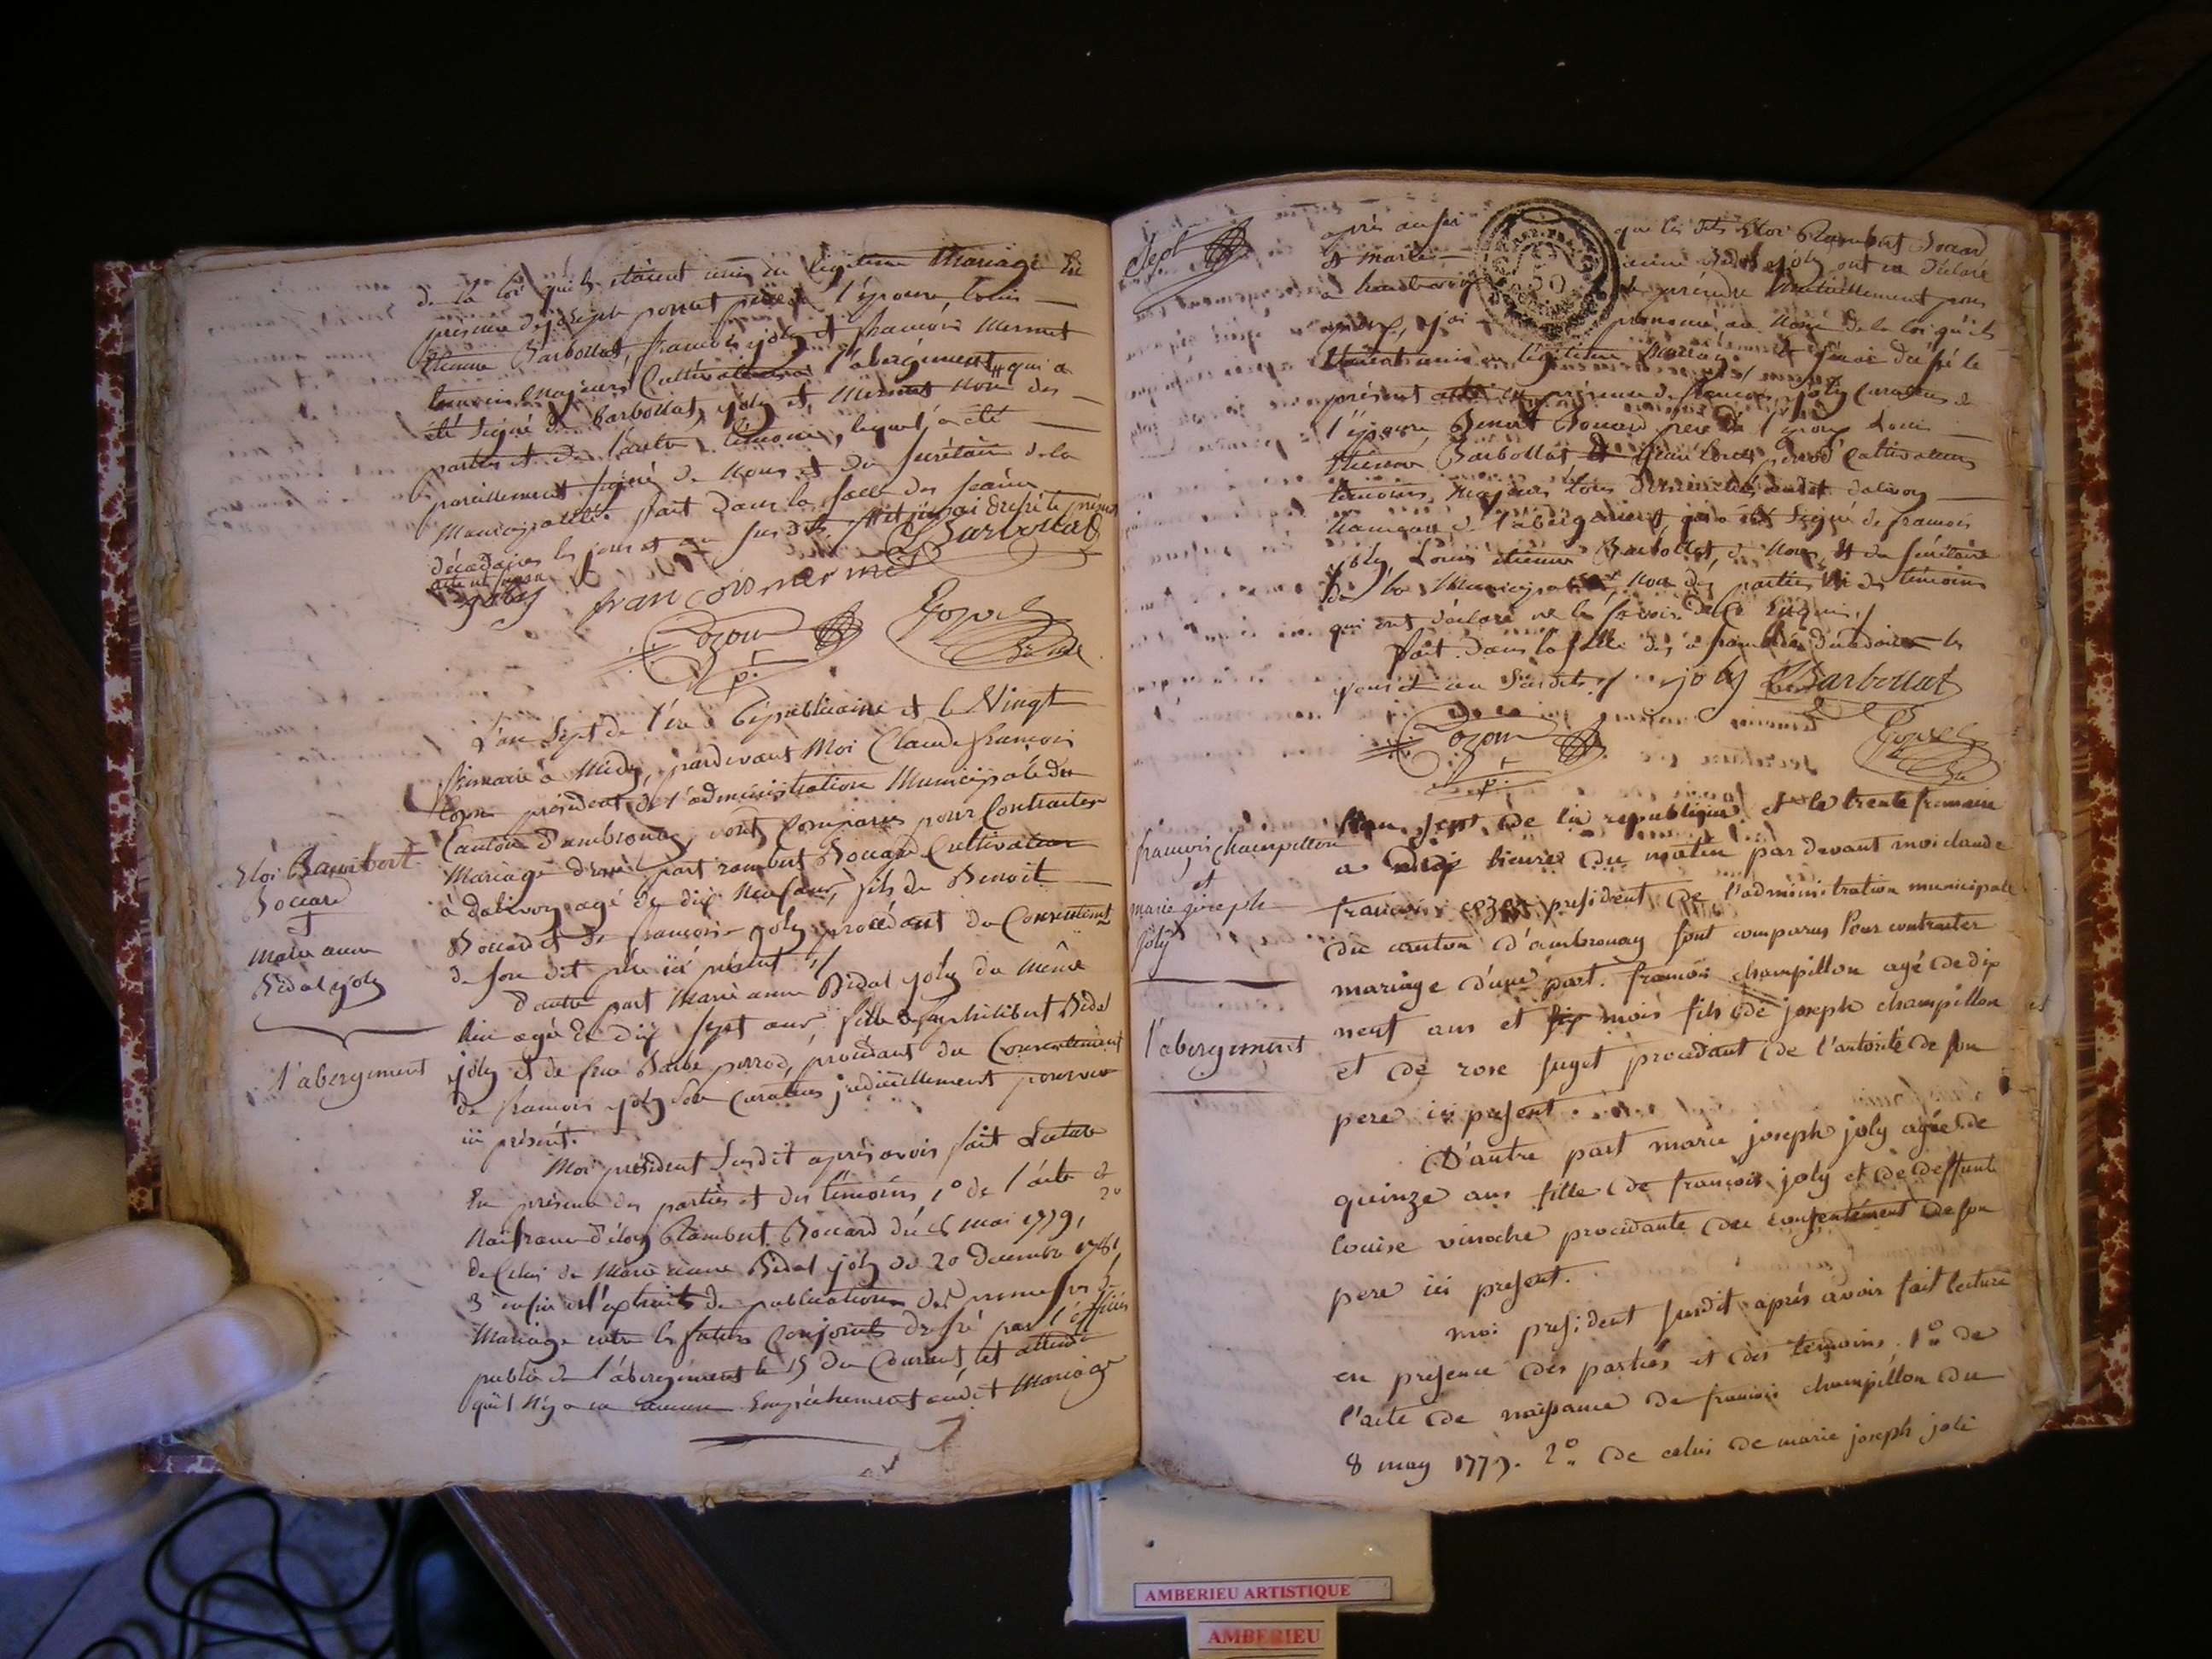 de la loi qu'ils étoient unis en légitime Mariage En
présence de joseph porret père de l'épouse, Louis
Etienne Barbollat, francois joly et francois Mermet
temoins Majeurs Cultivateurs l'abergement qui a
été signé de Barbollat, joly et Mermet Non des
parties et de l'autre témoins, lequel a été
pareillement signé de Nous et du secrétaire de la
Municipalité. fait dans la salle des séances
décadaires les jour et an susdits. / et j'ai dressé le présent
acte
joly
francois mermet
Barbollat
Cozon
p.t
L'an Sept de l'ère Républicaine et le Vingt
frimaire à Midy, pardevant Moi Claude francois
Cozon président de l'administration Municipale du
Canton d'ambronay, sont Comparus pour Contracter
Mariage d'une part rambert Bouard Cultivateur
à dalivoy agé de dix Neuf ans, fils de Benoit
Bouard et de francoise joly procédant du Consentement
de son dit père ici présent //
d'autre part Marie anne Bidal joly du Même
lieu agée de dix sept ans fille de feu philibert Bidal
joly et de feue Barbe perrod, procédant du Consentement
de francois joly son Curateur judiciellement pourvu
ici présent.
Moi président susdit après avoir fait Lecture
En présence des parties et des témoins 1o de l'acte de
Naissance d'éloy Rambert Bouard du 16 mai 1779, 2o
de Celui de Marie anne Bidal joly du 20 decembre 1781,
3o enfin de l'extrait de publication des promesses de
Mariage entre les futurs Conjoints dressé par l'officier
public de l'abergement le 15 du Courant, et attendu
qu'il N'y a eu aucun Empêchement audit Mariage
Eloi Rambert
Bouard
et
Marie anne
Bidal joly
l'abergement
Sept
après aussi que les dits Eloi Rambert Bouard
et marie anne Bidal joly ont eu déclaré
a haute voix se prendre Mutuellement pour
époux, j'ai prononcé au Nom de la loi qu'ils
étoient unis en légitime Mariage et j'ai dressé le
présent acte en présence de francois joly Curateur de
l'épouse, Benoit Bouard père de l'époux Louis
Etienne Barbollat et jean Louis perrod Cultivateurs
témoins Majeurs tous domiciliés audit dalivoy
hameau de l'abergement, qui a été signé de francois
joly, Louis etienne Barbollat, de Nous, et du secrétaire
de la Municipalité, Non des parties Ni des témoins
qui ont déclaré ne le savoir de ce Enquis. /
fait dans la salle des assemblées décadaires les
jour et an susdits. / joly Barbollat
Cozon
p.t
francois champillon
et
marie joseph
joly
l'abergement
L'an sept de la republique et le trente frimaire
a dix heures du matin par devant moi claude
francois cozon president de l'administration municipale
du canton d'ambronay sont comparus Pour contracter
mariage d'une part. francois champillon agé de dix
neuf ans et six mois fils de joseph champillon
et de rose suget procedant de l'autorité de son
pere ici present.
D'autre part marie joseph joly agée de
quinze ans fille de francois joly et de deffunte
louise vinoche procedante du consentement de son
pere ici present.
moi president susdit après avoir fait lecture
en presence des parties et des temoins. 1o de
l'acte de naissance de francois champillon du
8 may 1779. 2o de celui de marie joseph joli
AMBERIEU ARTISTIQUE
AMBERIEU